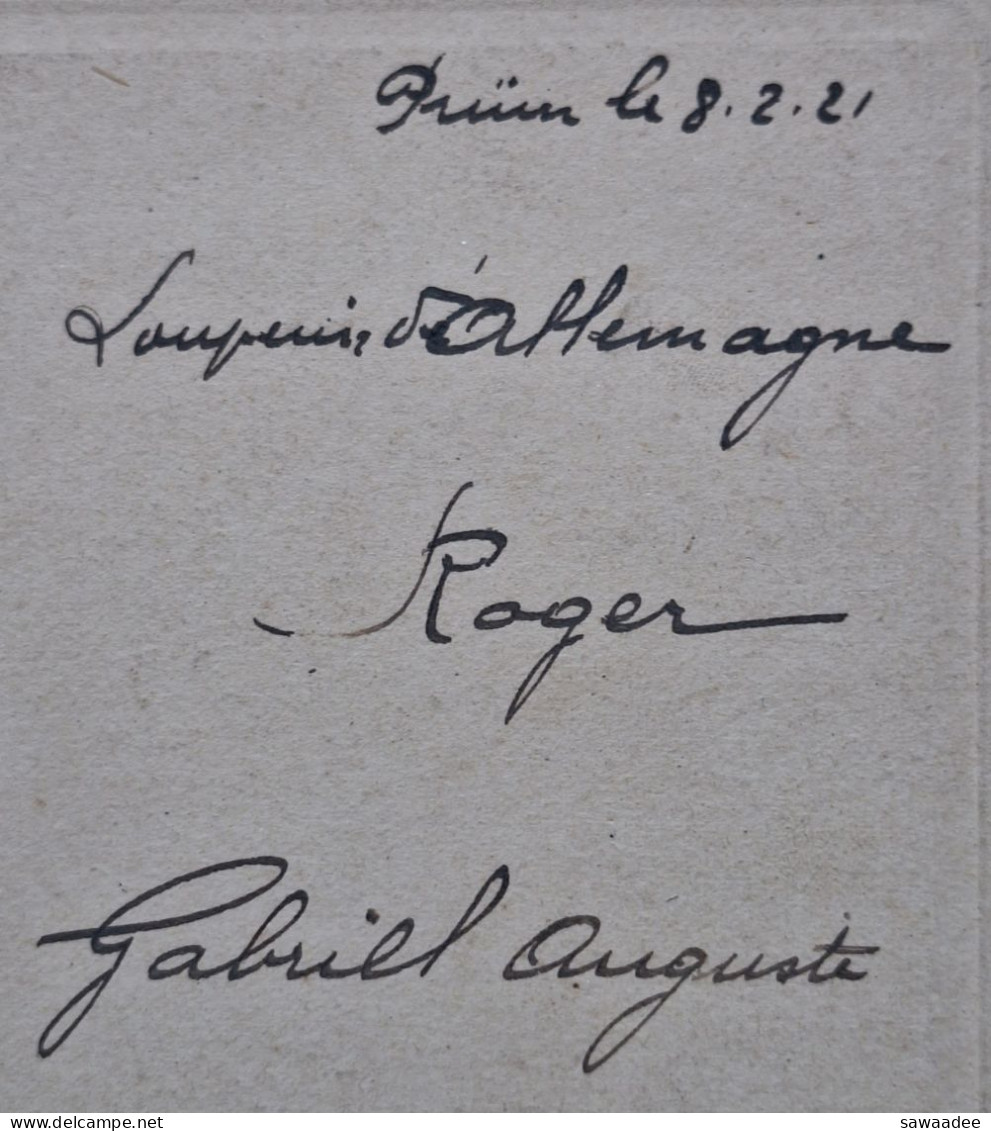 Prüm le 8.2.21
Souvenir d'Allemagne
Roger
Gabriel Auguste
www.delcampe.net
sawaadee